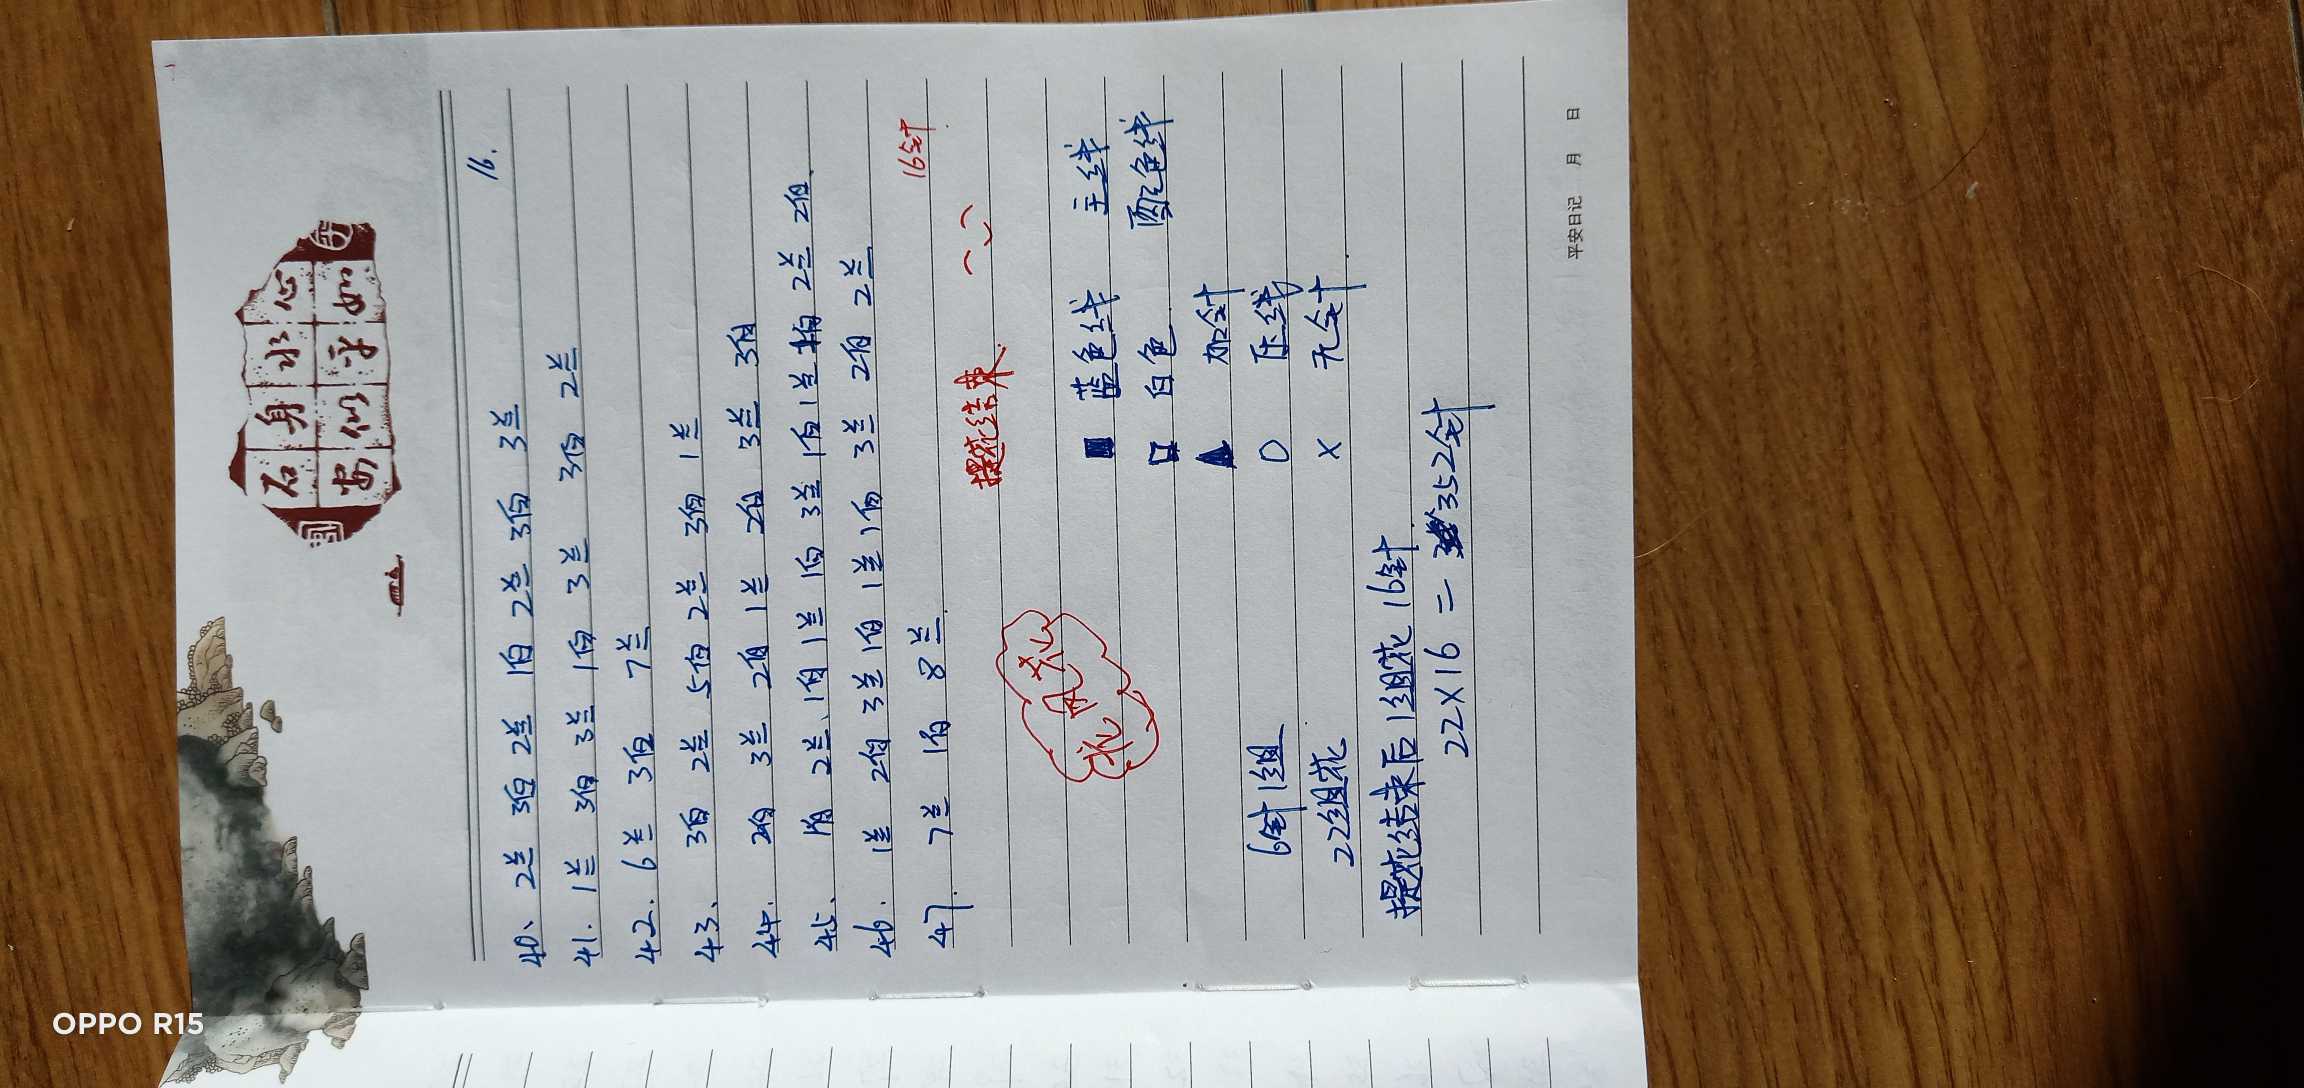 石身水心
安似平如
16.
40、2兰 3白 2兰 1白 2兰 3白 3兰
41. 1兰 3白 3兰 1白 3兰 3白 2兰
42. 6兰 3白 7兰
43、3白 2兰 5白 2兰 3白 1兰
44. 2白 3兰 2白 1兰 2白 3兰 3白
45、1白 2兰、1白 1兰 1白 3兰 1白 1兰 1白 2兰 2白
46. 1兰 2白 3兰 1白 1兰 1白 3兰 2白 2兰
47. 7兰 1白 8兰 16针
提花结束.
■ 蓝色线 主线
□ 白色 配色线
▲ 加针
6针1组 O 压线
22组花 X 无针
提花结束后1组花16针
22X16=352针
平安日记 月 日
OPPO R15